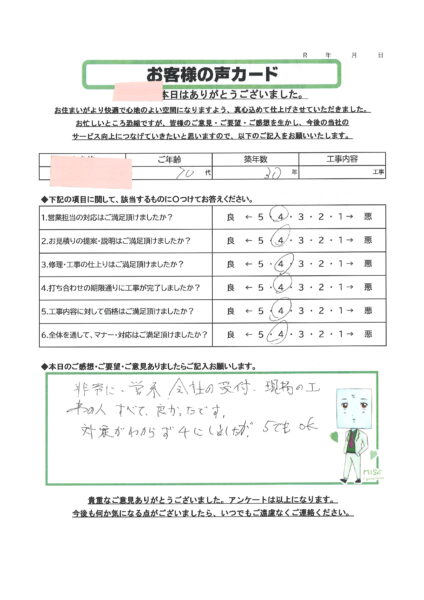 R　年　月　日
お客様の声カード
本日はありがとうございました。
お住まいがより快適で心地のよい空間になりますよう、真心込めて仕上げさせていただきました。
お忙しいところ恐縮ですが、皆様のご意見・ご要望・ご感想を生かし、今後の当社の
サービス向上につなげていきたいと思いますので、以下のご記入をお願いいたします。
ご年齢 築年数 工事内容
70 代 30 年 工事
◆下記の項目に関して、該当するものに〇つけてお答えください。
1.営業担当の対応はご満足頂けましたか？ 良 ← 5 ・ 4 ・ 3 ・ 2 ・ 1 → 悪
2.お見積りの提案・説明はご満足頂けましたか？ 良 ← 5 ・ 4 ・ 3 ・ 2 ・ 1 → 悪
3.修理・工事の仕上りはご満足頂けましたか？ 良 ← 5 ・ 4 ・ 3 ・ 2 ・ 1 → 悪
4.打ち合わせの期限通りに工事が完了しましたか？ 良 ← 5 ・ 4 ・ 3 ・ 2 ・ 1 → 悪
5.工事内容に対して価格はご満足頂けましたか？ 良 ← 5 ・ 4 ・ 3 ・ 2 ・ 1 → 悪
6.全体を通して、マナー・対応はご満足頂けましたか？ 良 ← 5 ・ 4 ・ 3 ・ 2 ・ 1 → 悪
◆本日のご感想・ご要望・ご意見ありましたらご記入お願いします。
非常に・営業 会社の受付・現場の工
事の人 すべて、良かったです。
対象がわからず4にしましたが、5でもOK
貴重なご意見ありがとうございました。アンケートは以上になります。
今後も何か気になる点がございましたら、いつでもご遠慮なくご連絡ください。